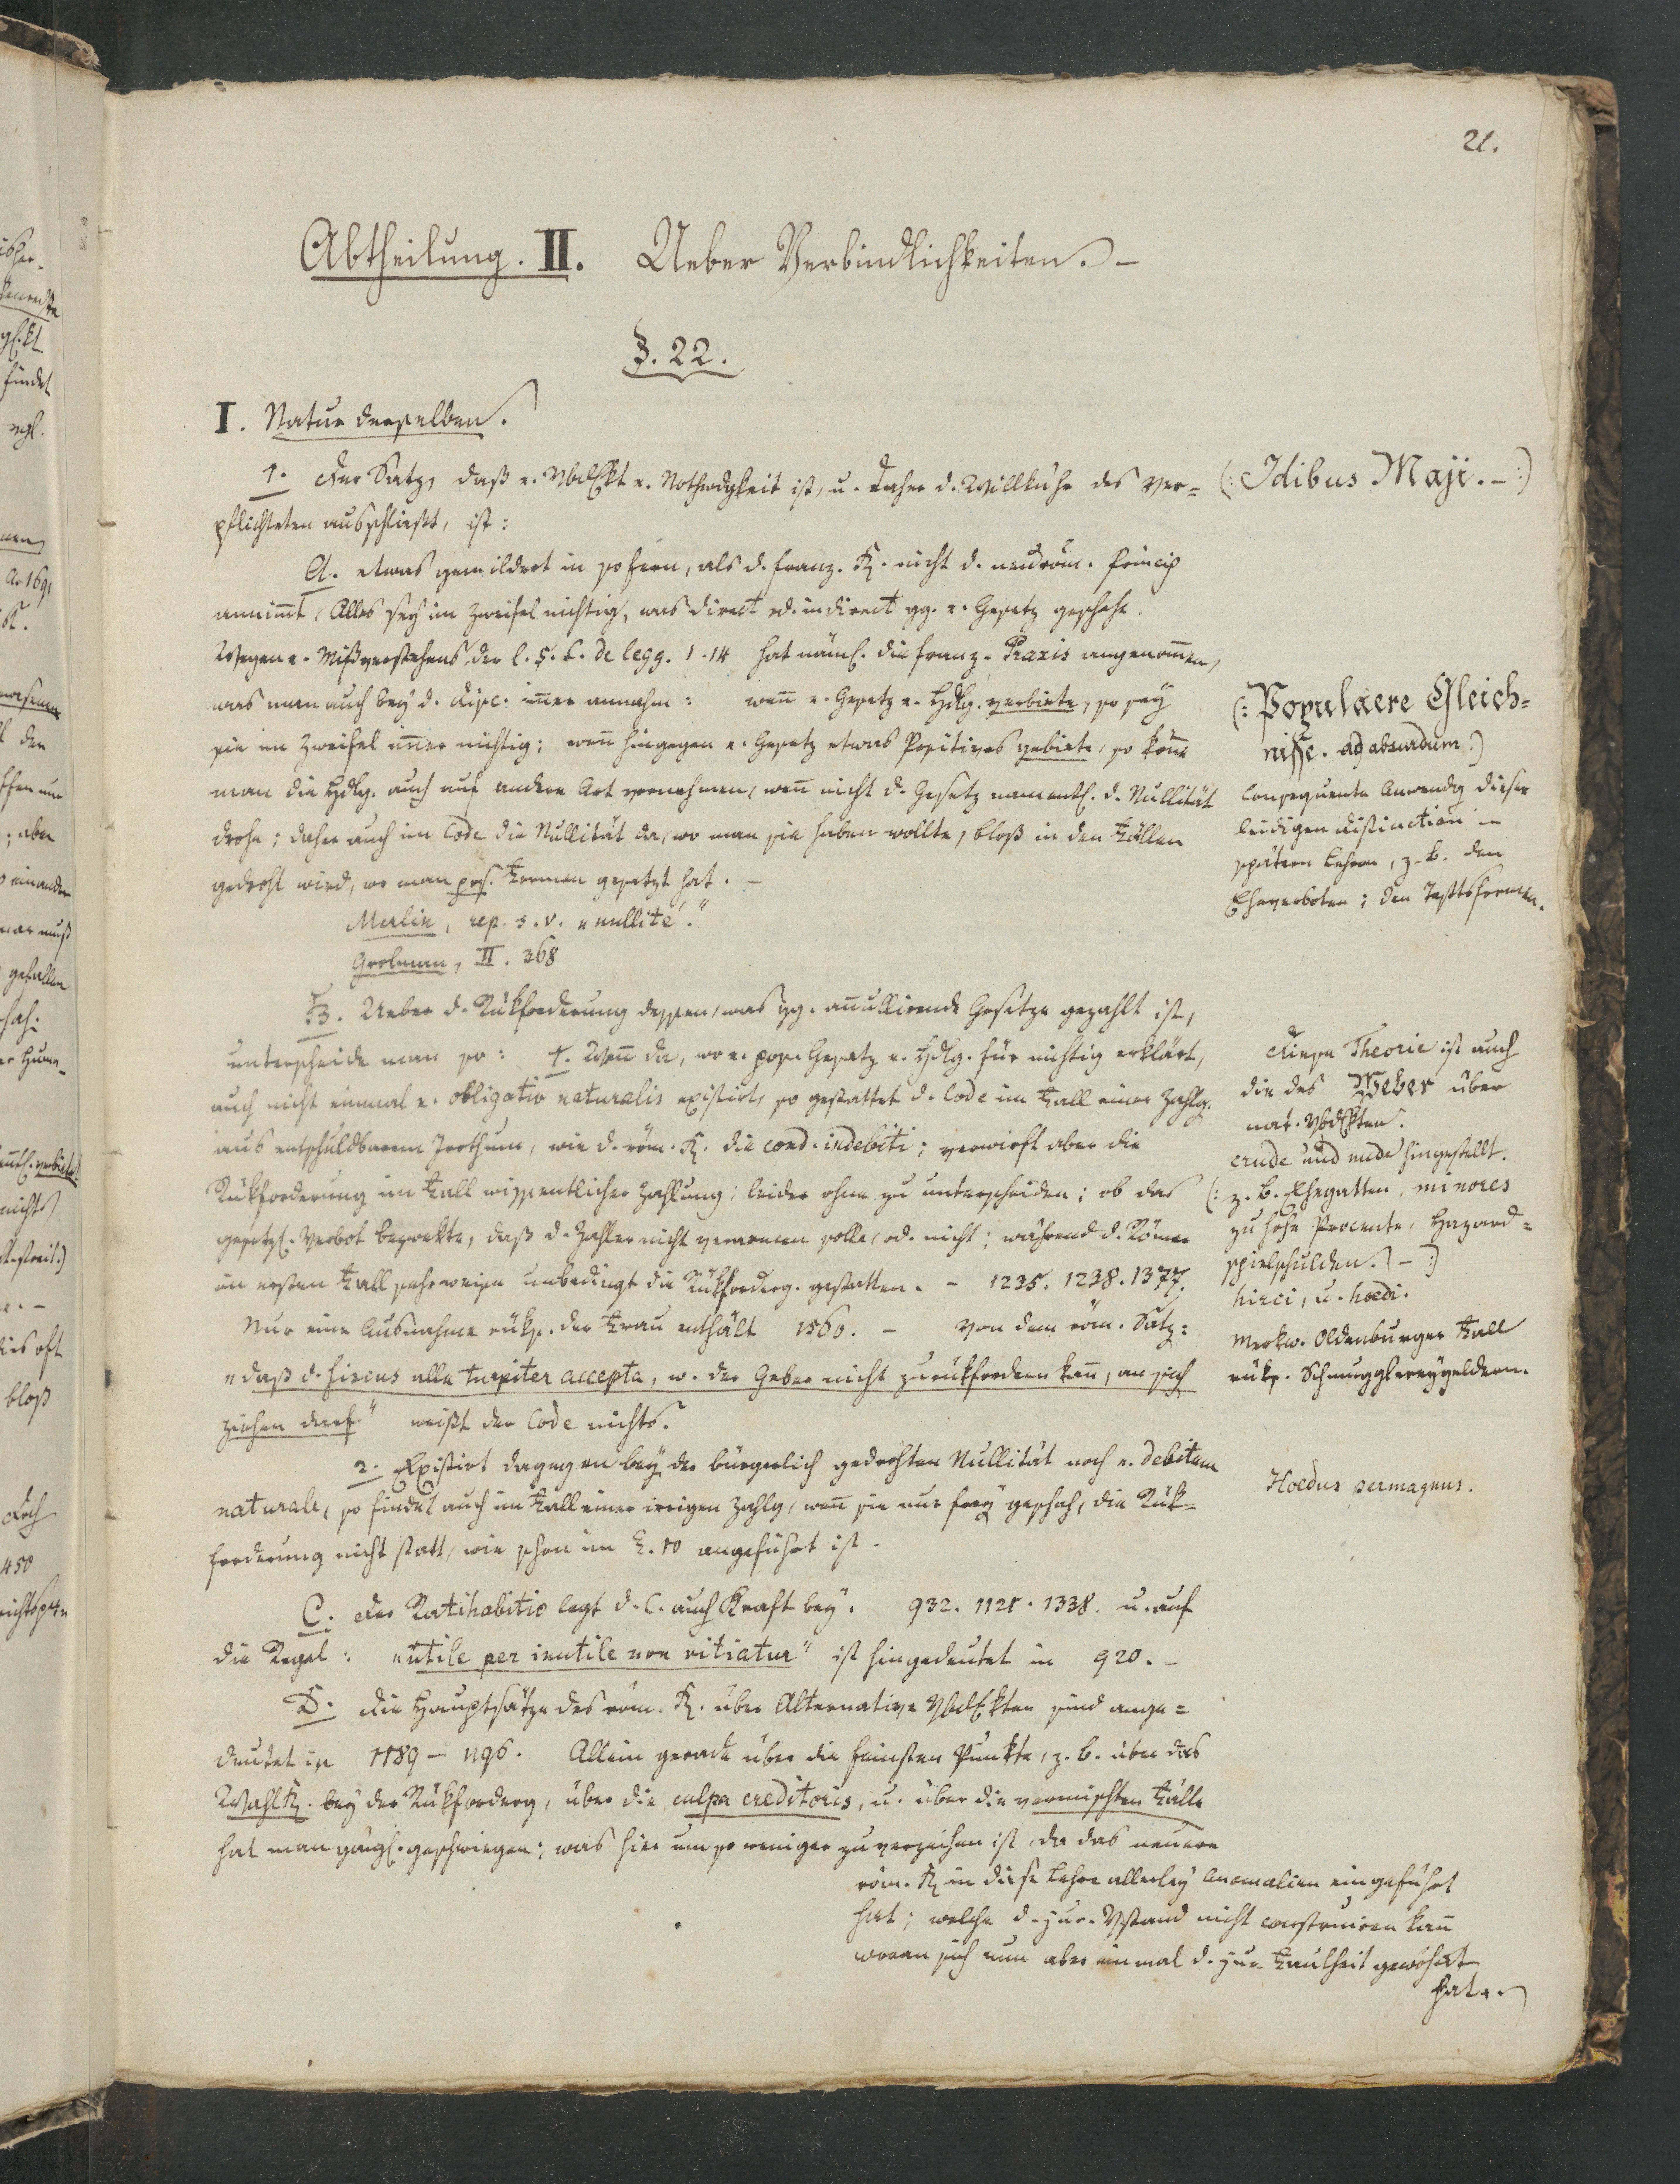 21.
Abtheilung. II. Ueber Verbindlichkeiten. –
§. 22.
I. Natur derselben.
1. Der Satz, daß e. Vbdlkt e. Nothwdgkeit ist, u. daher d. Willkühr des Ver=
pflichteten ausschließt, ist:
(: Idibus Maji. – :)
A. etwas gemildert in sofern, als d. franz. R. nicht d. neuröm. Princip
annim̄t, Alles sey im Zweifel nichtig, was direct od. indirect gg. e. Gesetz geschehe.
Wegen e. Mißverstehens der l. 5. C. de legg. 1.14 hat näml. die franz. Praxis angenom̄en,
was man auch bey d. Disc. im̄er annahm: wen̄ e. Gesetz e. Hdlg. verbiete, so sey
sie im Zweifel im̄er nichtig; wen̄ hingegen e. Gesetz etwas Positives gebiete, so kön̄e
man die Hdlg. auch auf andere Art vornehmen, wen̄ nicht d. Gesetz namentl. d. Nullität
drohe; daher auch im Code die Nullität da, wo man sie haben wollte, bloß in den Fällen
gedroht wird, wo man pos. Formen gesetzt hat. –
Merlin, rep. s. v. „nullité."
Grolman, II. 368
(: Populaere Gleich=
nisse. ad absurdum :)
Consequente Anwendg dieser
leidigen Distinction in
spätern Lehren, z. B. den
Eheverboten; den Testtsformen.
B. Ueber d. Rükforderung dessen, was gg. an̄ullirende Gesetze gezahlt ist,
unterscheide man so: 1. Wen̄ da, wo e. pos. Gesetz e. Hdlg. für nichtig erklärt,
auch nicht einmal e. obligatio naturalis existirt, so gestattet d. Code im Fall einer Zahlg.
aus entschuldbarem Irrthum, wie d. röm. R. die cond. indebiti; verwirft aber die
Rükforderung im Fall wissentlicher Zahlung; leider ohne zu unterscheiden; ob das
gesetzl. Verbot bezwekte, daß d. Zahler nicht verarmen solle, od. nicht; während d. Römer
im ersten Fall sehr weise unbedingt die Rükforderg. gestatten. – 1235. 1238. 1377.
Nur eine Ausnahme rüks. der Frau enthält 1560. – Von dem röm. Satz:
„daß d. Fiscus alle turpiter accepta, w. der Geber nicht zurükfordern kan̄, an sich
ziehen darf" weißt der Code nichts.
Diese Theorie ist auch
die des Weber über
nat. Vbdlkten.
crude und nude hingestellt.
(: z. B. Ehegatten, minores
zu hohe Procente, Hazard=
spielschulden. – :)
hirci, u. hoedi.
Merkw. Oldenburger Fall
rüks. Schmugglereygeldern.
2. Existirt dagegen bey der bürgerlich gedrohten Nullität noch e. debitum
naturale, so findet auch im Fall einer irrigen Zahlg, wen̄ sie nur frey geschah, die Rük=
forderung nicht statt, wie schon im §. 10 angeführt ist.
Hoedus permagnus.
C. Der Ratihabitio legt d. C. auch Kraft bey. 932. 1121. 1338. u. auf
die Regel: „utile per inutile non vitiatur" ist hingedeutet in 920. –
D. Die Hauptsätze des röm. R. über Alternative Vbdlkten sind ange=
deutet in 1189 – 1196. Allein gerade über die feinsten Punkte, z. B. über das
WahlR. bey der Rükforderg, über die culpa creditoris, u. über die vermischten Fälle
hat man gänzl. geschwiegen; was hier um so weniger zu verzeihen ist, da das neuere
röm. R in diese Lehre allerley Anomalien eingeführt
hat; welche d. jur. Vstand nicht construiren kan̄
woran sich nun aber einmal d. jur. Faulheit gewöhnt
hat. –